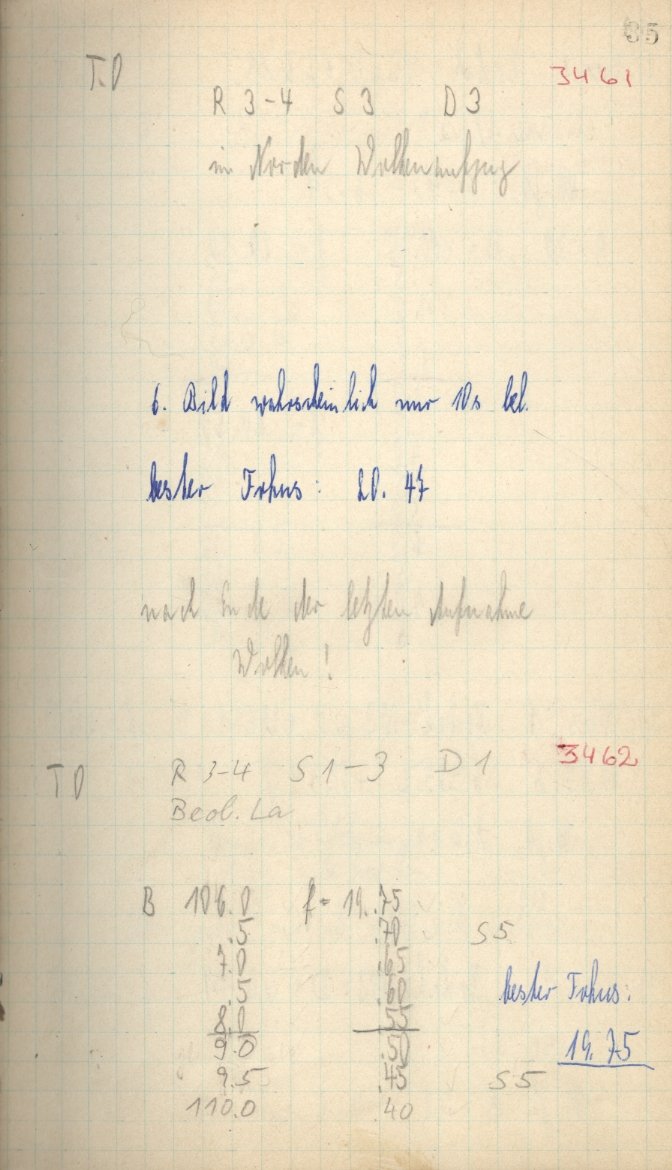 35
T.D 3461
R 3-4 S 3 D 3
im Norden Wolkenaufzug
6. Bild wahrscheinlich nur 10s bel.
bester Fokus: 20.47
nach Ende der letzten Aufnahme
Wolken!
TD R 3-4 S 1-3 D 1 3462
Beob. La
B 106.0 f = 19.75
.5 .70 S5
7.0 .65
.5 .60 bester Fokus:
8.0 .55
9.0 .50 19.75
9.5 .45 S5
110.0 40